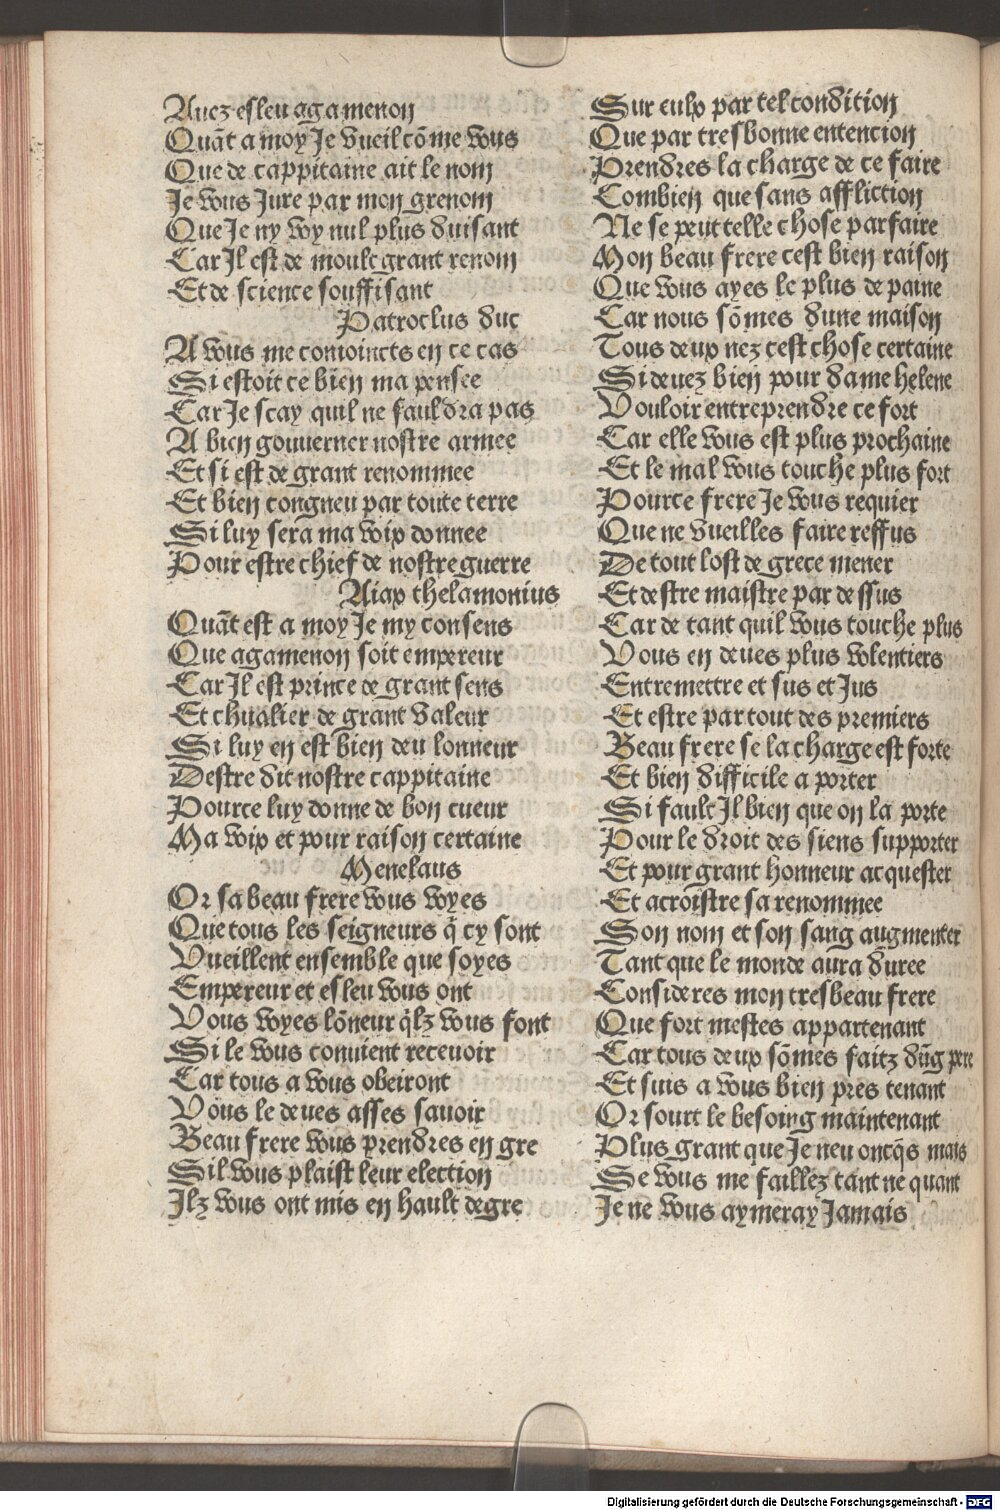 Auez esleu agamenon
Quāt a moy Je vueil cōme vous
Que de cappitaine ait le nom
Je vous Jure par mon grenom
Que Je ny voy nul plus duisant
Car Jl est de moult grant renom
Et de science souffisant
Patroclus duc
A vous me conioincts en ce cas
Si estoit ce bien ma pensee
Car Je scay quil ne fauldra pas
A bien gouuerner nostre armee
Et si est de grant renommee
Et bien congneu par toute terre
Si luy sera ma voix donnee
Pour estre chief de nostre guerre
Aiax thelamonius
Quāt est a moy Je my consens
Que agamenon soit empereur
Car Jl est prince de grant sens
Et chualier de grant valeur
Si luy en est bien deu lonneur
Destre dit nostre cappitaine
Pource luy donne de bon cueur
Ma voix et pour raison certaine
Menelaus
Or sa beau frere vous voyes
Que tous les seigneurs q̄ cy sont
Vueillent ensemble que soyes
Empereur et esleu vous ont
Vous voyes lōneur q̄lz vous font
Si le vous conuient receuoir
Car tous a vous obeiront
Vous le deues asses sauoir
Beau frere vous prendres en gre
Sil vous plaist leur election
Jlz vous ont mis en hault degre
Sur eulx par tel condition
Que par tresbonne entencion
Prendres la charge de ce faire
Combien que sans affliction
Ne se peut telle chose parfaire
Mon beau frere cest bien raison
Que vous ayes le plus de paine
Car nous sōmes dune maison
Tous deux nez cest chose certaine
Si deuez bien pour dame helene
Vouloir entreprendre ce fort
Car elle vous est plus prochaine
Et le mal vous touche plus fort
Pource frere Je vous requier
Que ne vueilles faire reffus
De tout lost de grece mener
Et destre maistre par dessus
Car de tant quil vous touche plus
Vous en deues plus volentiers
Entremettre et sus et Jus
Et estre par tout des premiers
Beau frere se la charge est forte
Et bien difficile a porter
Si fault Jl bien que on la porte
Pour le droit des siens supporter
Et pour grant honneur acquester
Et acroistre sa renommee
Son nom et son sang augmenter
Tant que le monde aura duree
Consideres mon tresbeau frere
Que fort mestes appartenant
Car tous deux sōmes faitz dūg pere
Et suis a vous bien pres tenant
Or sourt le besoing maintenant
Plus grant que Je neu oncq̄s mais
Se vous me faillez tant ne quant
Je ne vous aymeray Jamais
Digitalisierung gefördert durch die Deutsche Forschungsgemeinschaft - DFG